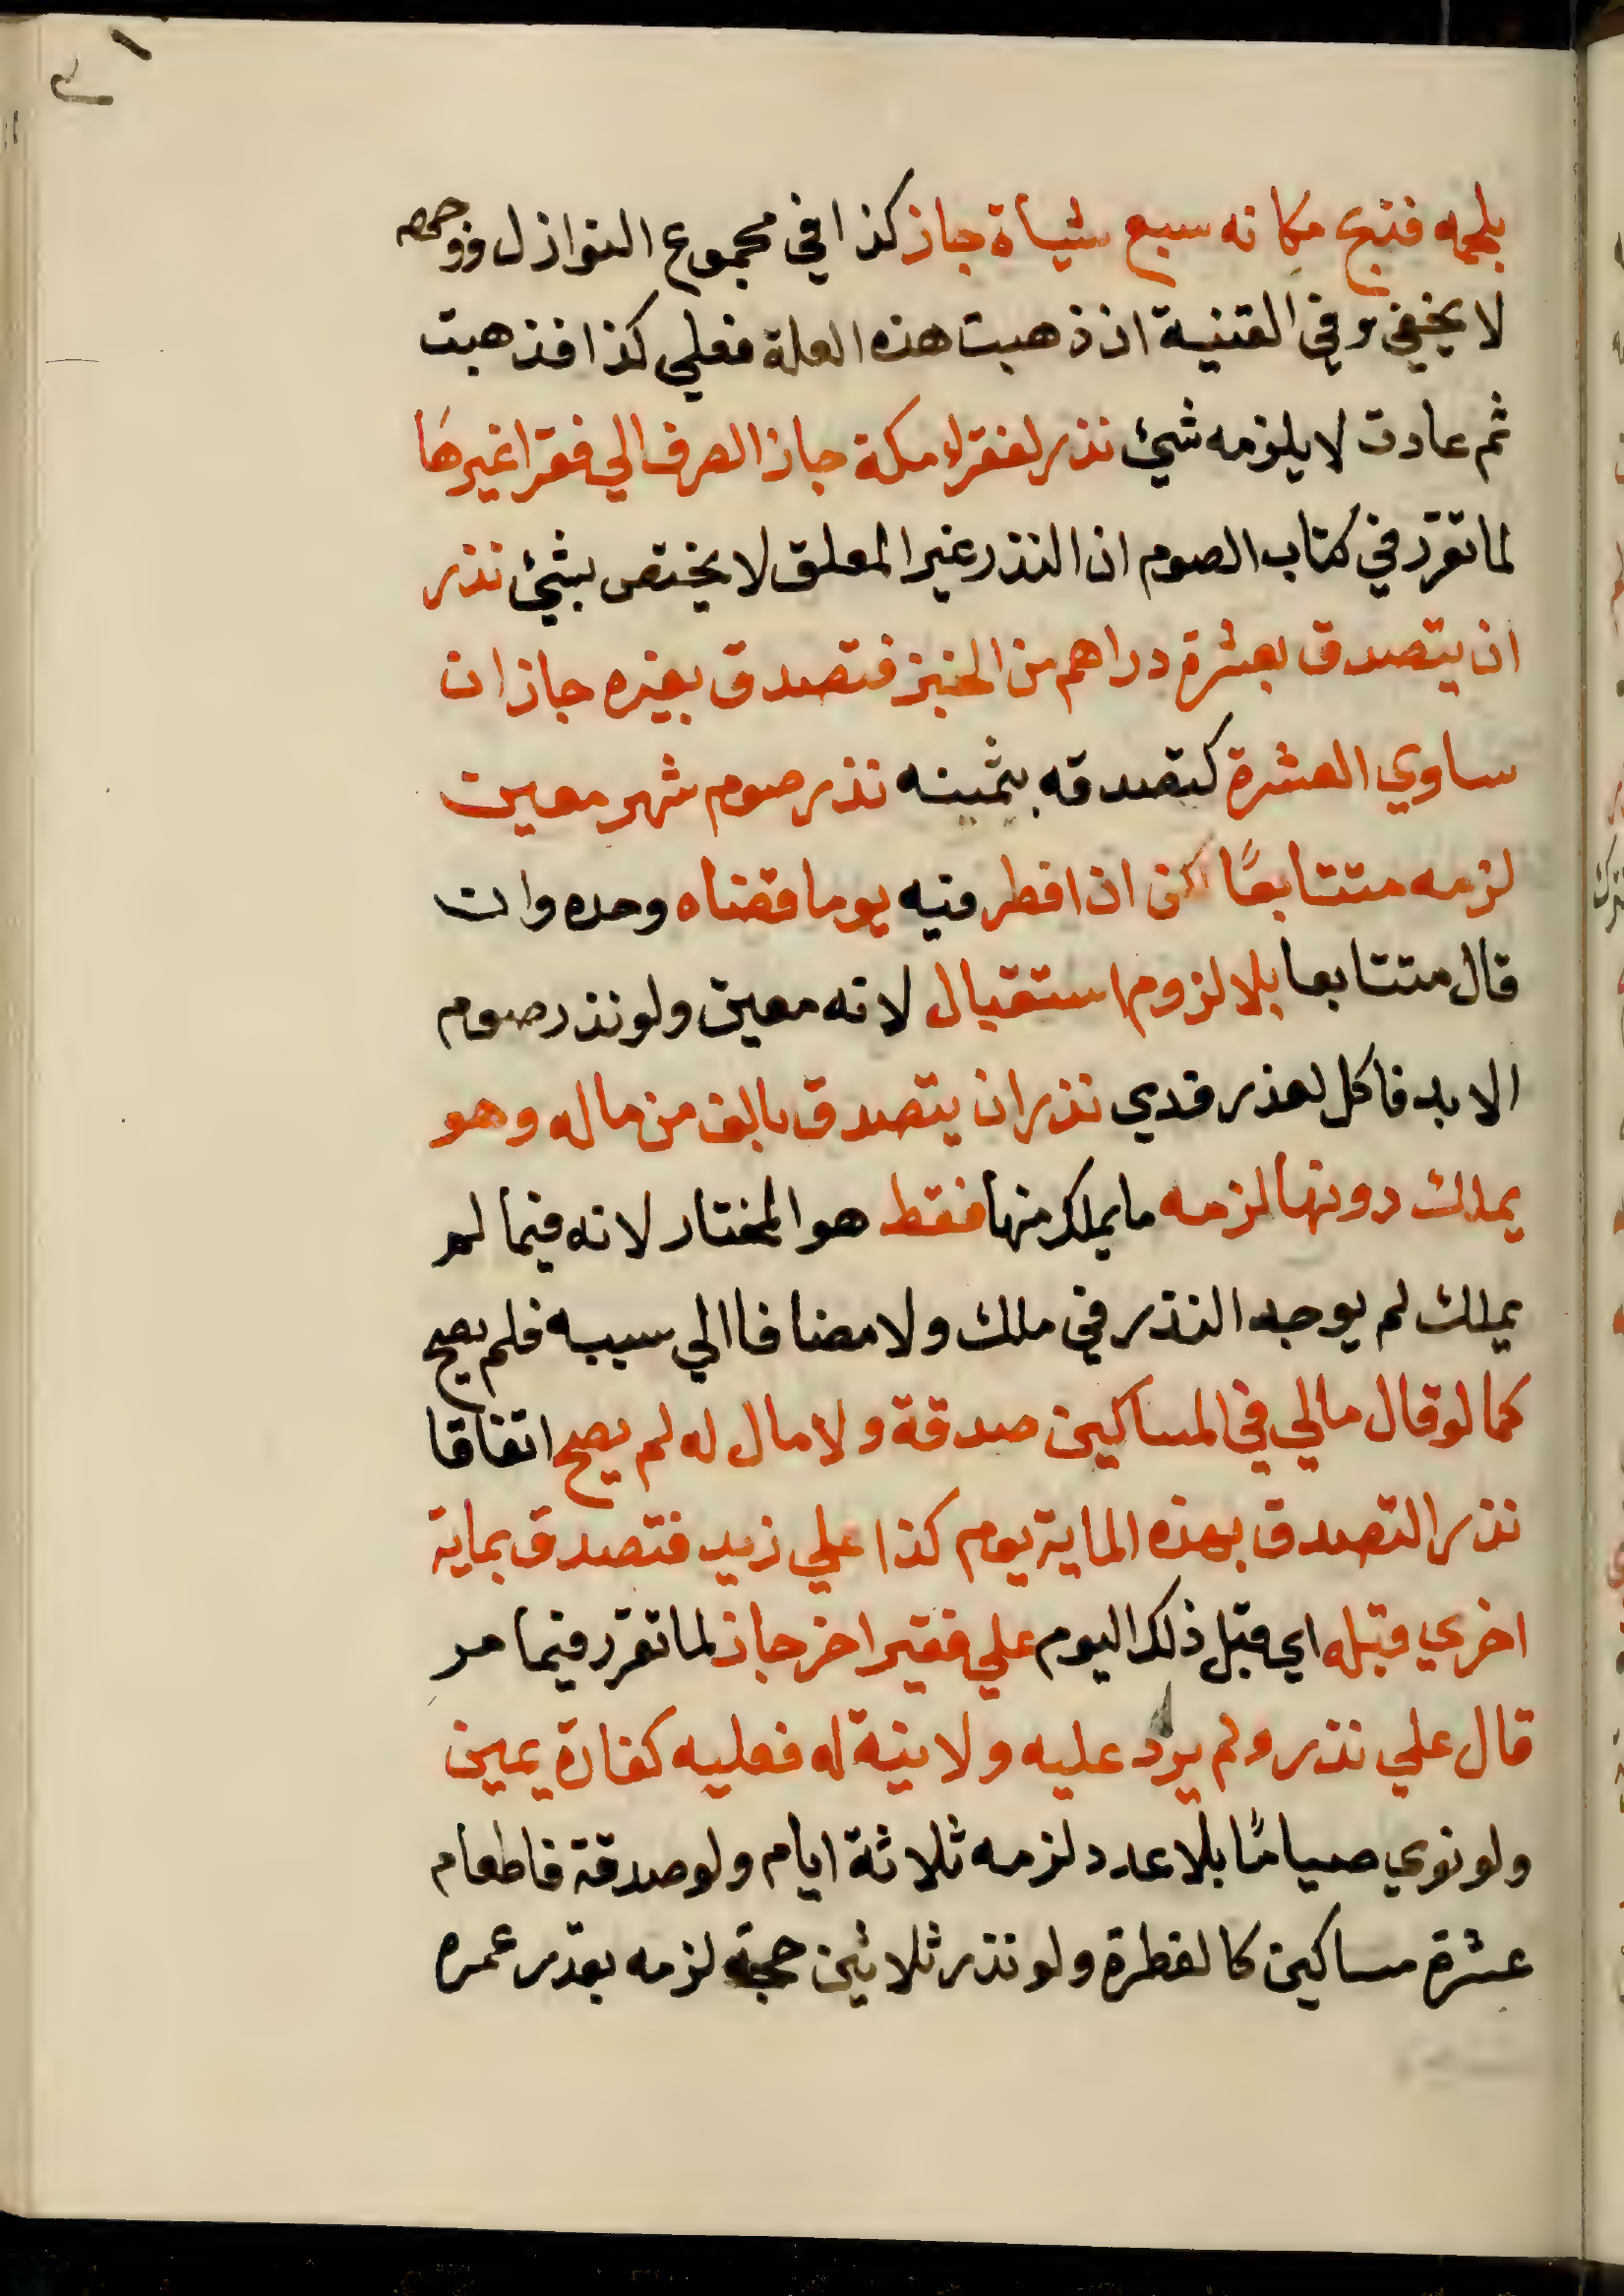 بلحمه فذبح مكانه سبع شياة جاز كذا في مجموع النوازل ووجهه
لا يخفي وفي القنية ان ذهبت هذه العلة فعلي كذا فذهبت
ثم عادت لا يلزمه شئ نذر لفقراء مكة جاز الصرف الي فقرا غيرها
لما تقرر في كتاب الصوم ان النذر غير المعلق لا يختص بشئ نذر
ان يتصدق بعشرة دراهم من الخبز فتصدق بغيره جاز ان
ساوي العشرة كتصدقه بثمنه نذر صوم شهر معين
لزمه متتابعًا لكن ان افطر فيه يوما قضاه وحده وان
قال متتابعا بلا لزوم استقبال لانه معين ولو نذر صوم
الابد فاكل لعذر فدي نذر ان يتصدق بالف من ماله وهو
يملك دونها لزمه ما يملك منها فقط هو المختار لانه فيما لم
يملك لم يوجد النذر في ملك ولا مضافا الي سببه فلم يصح
كما لو قال مالي في المساكين صدقة ولا مال له لم يصح اتفاقا
نذر التصدق بهذه الماية يوم كذا علي زيد فتصدق بماية
اخري قبله اي قبل ذلك اليوم علي فقير اخر جاز لما تقرر فيما مر
قال علي نذر ولم يرد عليه ولا نية له فعليه كفارة يمين
ولو نوي صيامًا بلا عدد لزمه ثلاثة ايام ولو صدقة فاطعام
عشرة مساكين كالفطرة ولو نذر ثلاثين حجة لزمه بقدر عمره